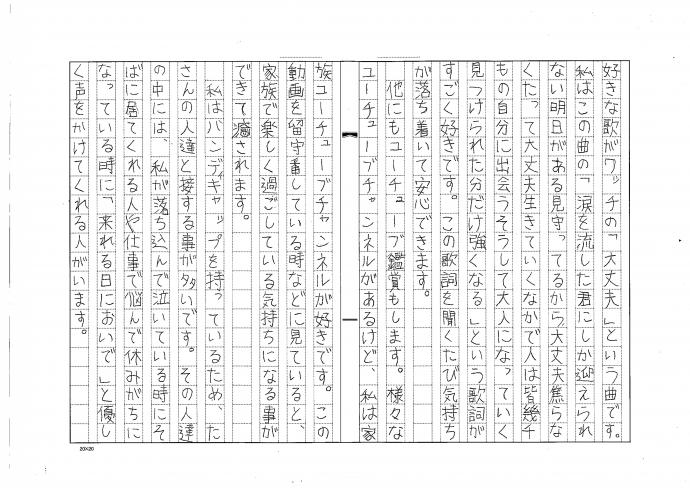 好きな歌がワッチの「大丈夫」という曲です。
私はこの曲の「涙を流した君にしか迎えられ
ない明日がある見守ってるから大丈夫焦らな
くたって大丈夫生きていくなかで人は皆幾千
もの自分に出会うそうして大人になっていく
見つけられた分だけ強くなる」という歌詞が
すごく好きです。この歌詞を聞くたび気持ち
が落ち着いて安心できます。
他にもユーチューブ鑑賞もします。様々な
ユーチューブチャンネルがあるけど、私は家
族ユーチューブチャンネルが好きです。この
動画を留守番している時などに見ていると、
家族で楽しく過ごしている気持ちになる事が
できて癒されます。
私はハンディキャップを持っているため、た
さんの人達と接する事が多いです。その人達
の中には、私が落ち込んで泣いている時にそ
ばに居てくれる人や仕事で悩んで休みがちに
なっている時に「来れる日においで」と優し
く声をかけてくれる人がいます。
20×20